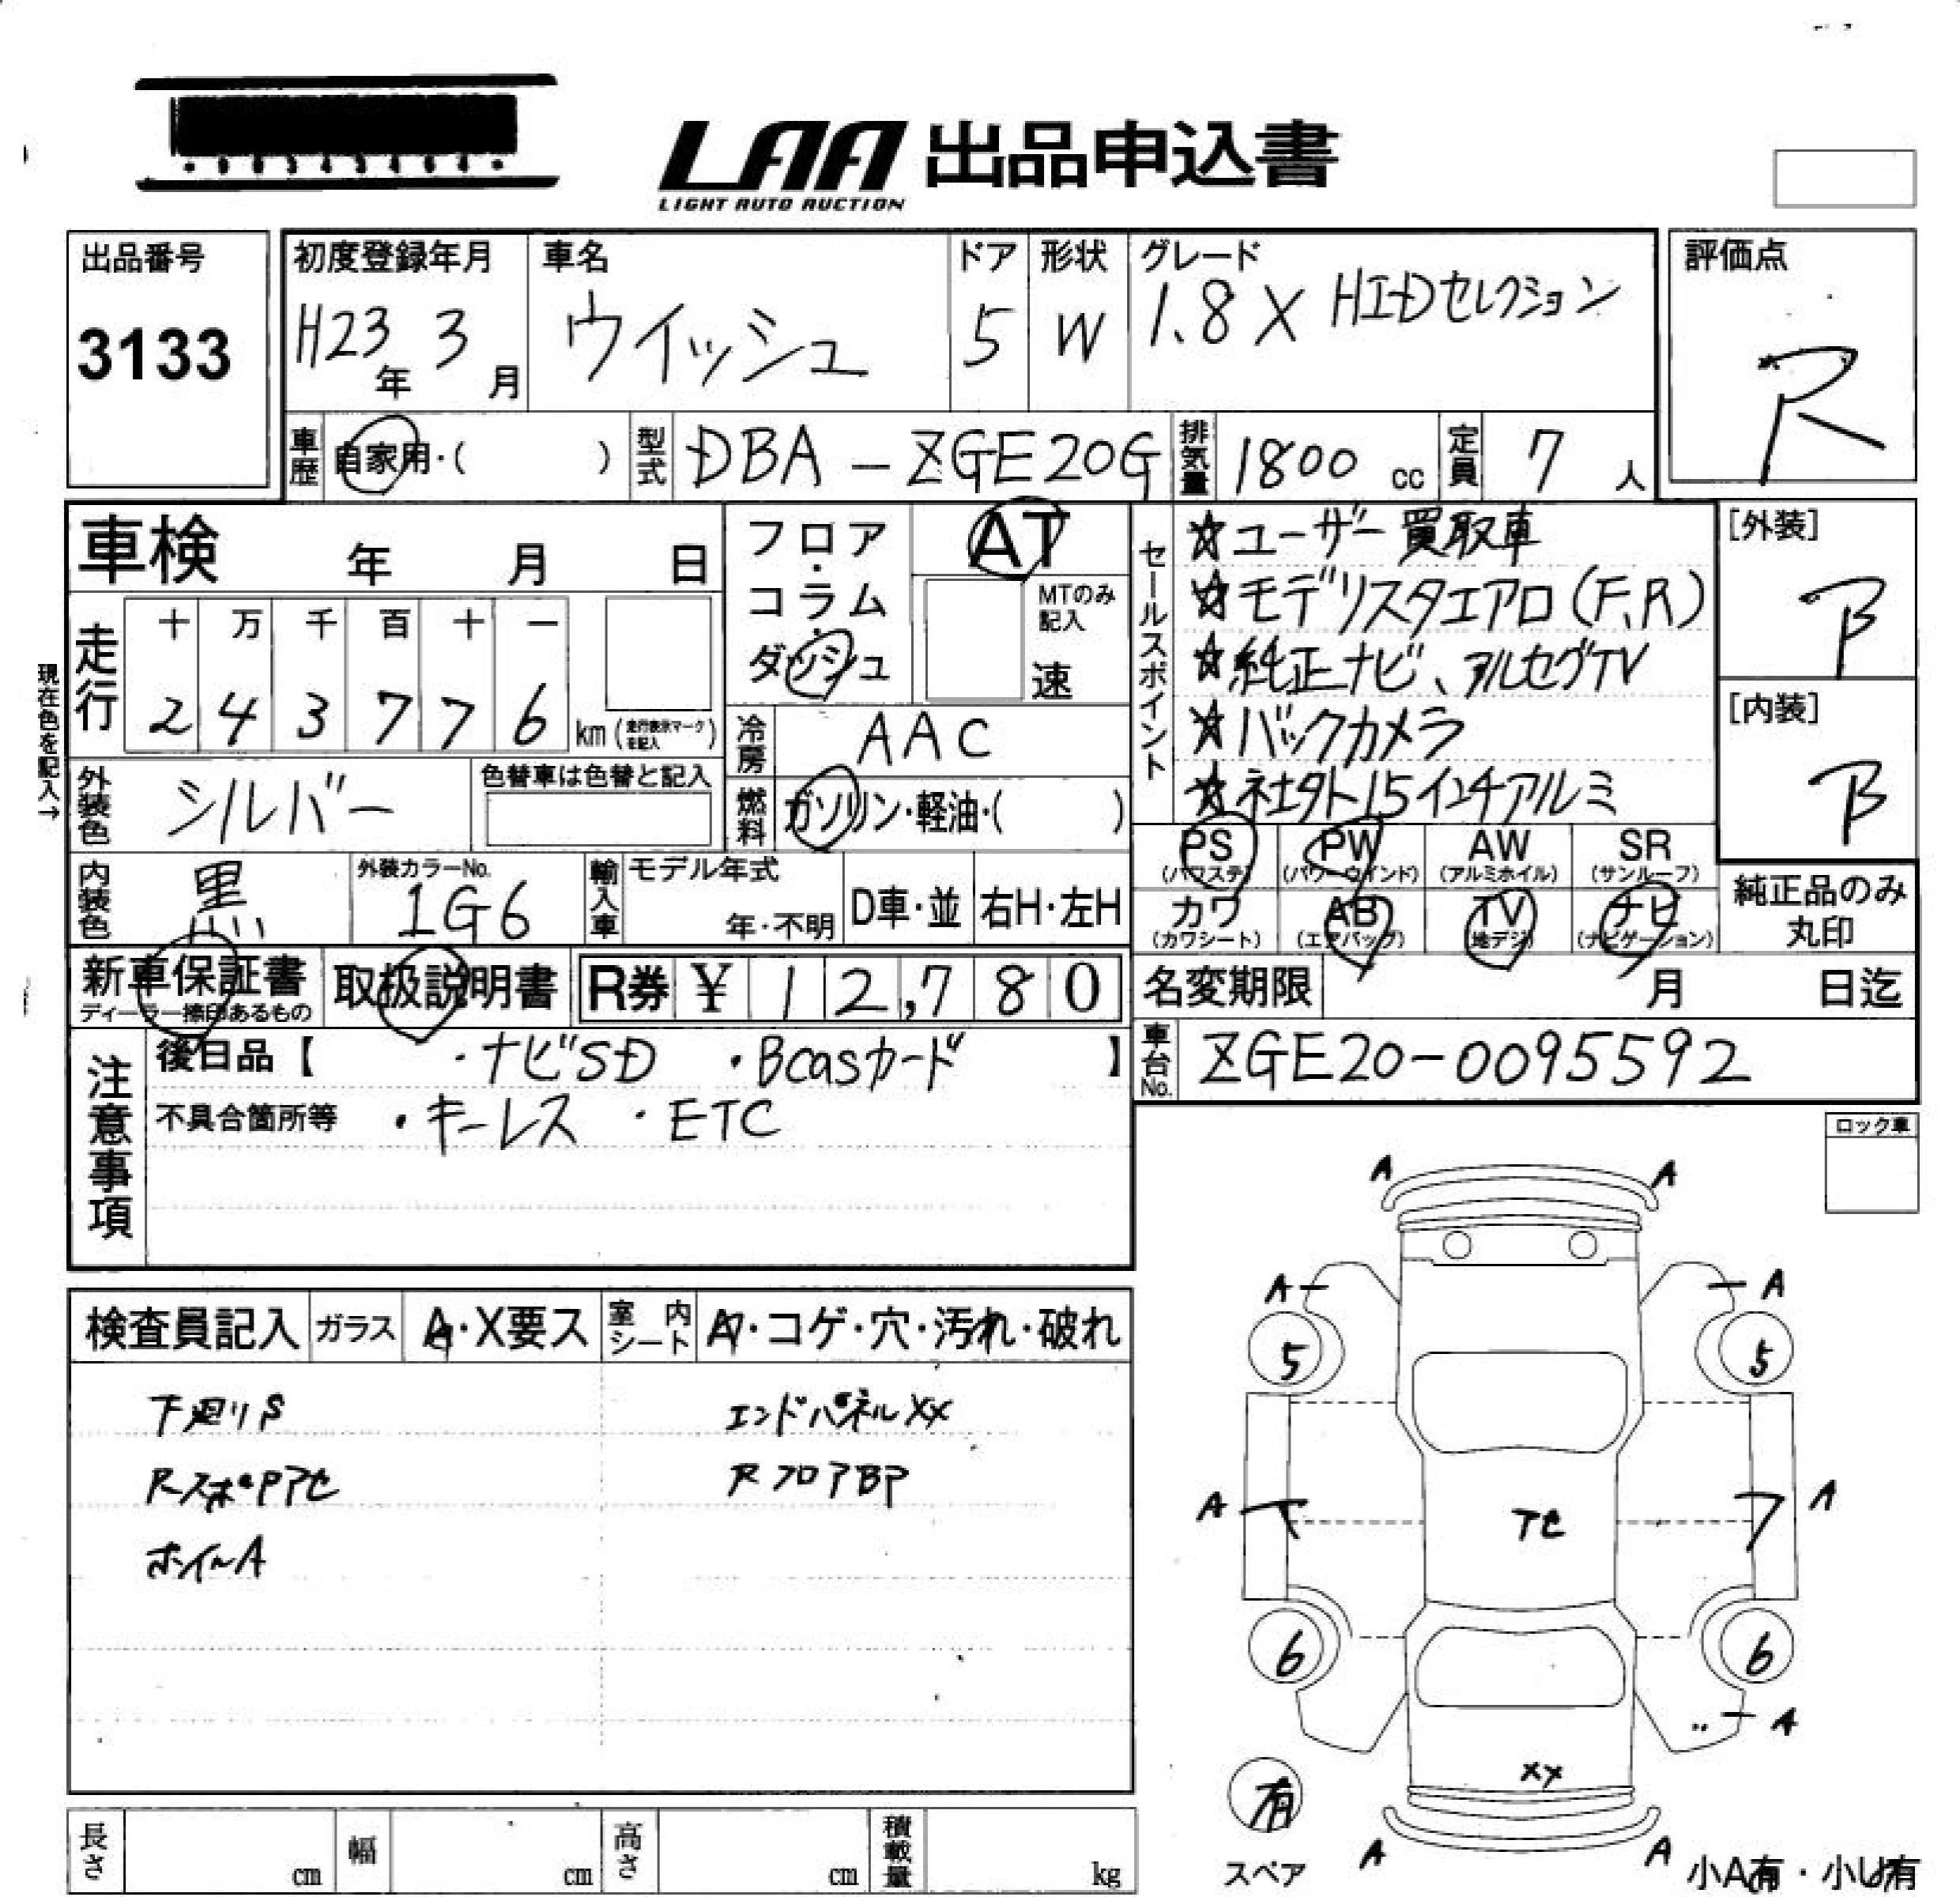 LAA 出品申込書
LIGHT AUTO AUCTION
出品番号
3133
初度登録年月
H23年 3月
車名
ウイッシュ
ドア
5
形状
W
グレード
1.8X HIDセレクション
評価点
R
車歴 自家用・( )
型式 DBA-ZGE20G
排気量 1800 cc
定員 7 人
車検 年 月 日
現在色を記入→
走行
十 万 千 百 十 一
2 4 3 7 7 6 km (走行表示マークを記入)
フロア・コラム・ダッシュ
AT
MTのみ記入
速
冷房 AAC
燃料 ガソリン・軽油・( )
外装色 シルバー
色替車は色替と記入
内装色 黒
外装カラーNo.
1G6
輸入車 モデル年式
年・不明
D車・並
右H・左H
セールスポイント
☆ユーザー買取車
☆モデリスタエアロ(F,R)
☆純正ナビ、フルセグTV
☆バックカメラ
☆社外15インチアルミ
[外装]
B
[内装]
B
PS (パワステ)
PW (パワーウインド)
AW (アルミホイル)
SR (サンルーフ)
カワ (カワシート)
AB (エアバッグ)
TV (地デジ)
ナビ (ナビゲーション)
純正品のみ丸印
新車保証書
ディーラー捺印あるもの
取扱説明書
R券 ¥ 12,780
名変期限 月 日迄
車台No. ZGE20-0095592
注意事項
後日品【 ・ナビSD ・Bcasカード 】
不具合箇所等 ・キーレス ・ETC
ロック車
検査員記入
ガラス A・X要ス
室内シート A・コゲ・穴・汚れ・破れ
下廻りS
エンドパネルXX
RスポPアセ
RフロアBP
ホイールA
A A
A A
5 5
A A
アセ
6 6
A
XX
A A
有
スペア
小A有・小U有
長さ cm
幅 cm
高さ cm
積載量 kg